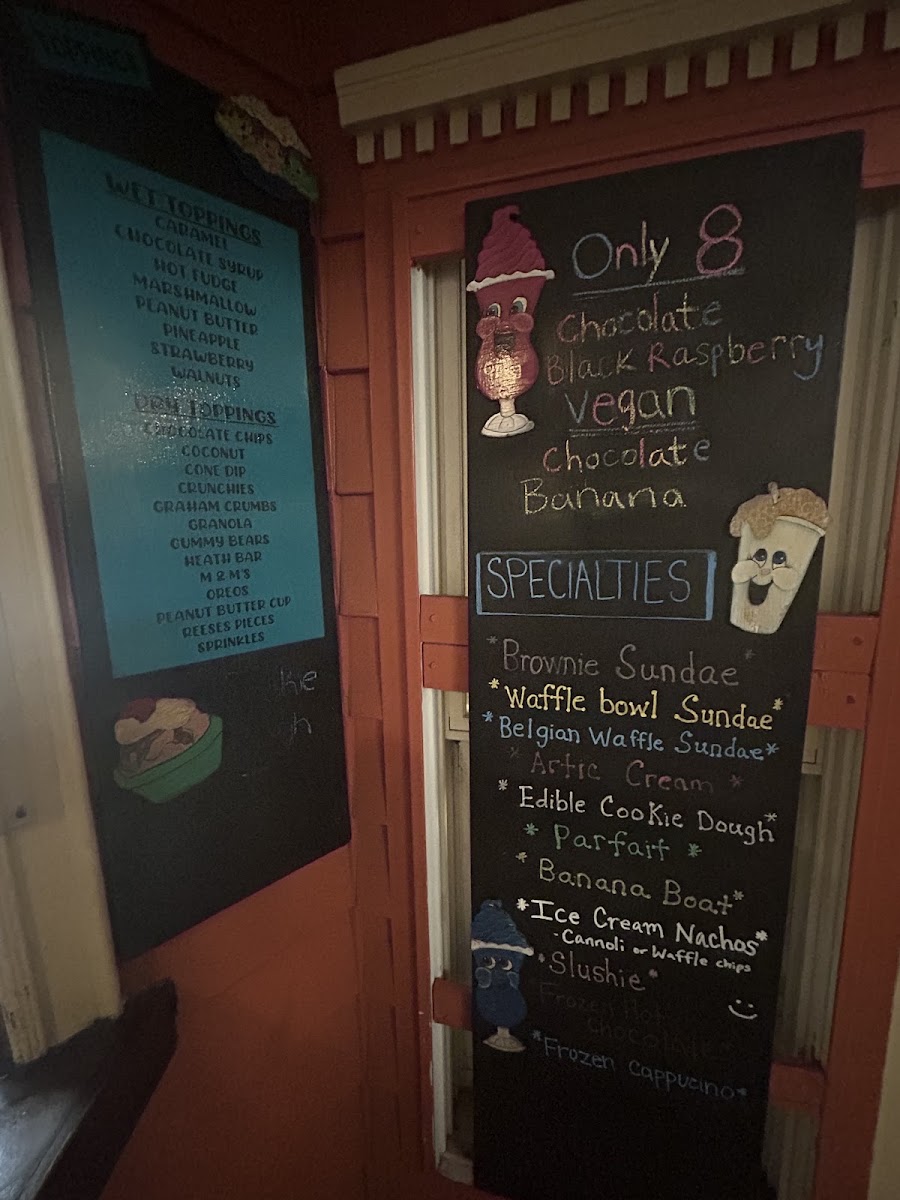 TOPPINGS
WET TOPPINGS
CARAMEL
CHOCOLATE SYRUP
HOT FUDGE
MARSHMALLOW
PEANUT BUTTER
PINEAPPLE
STRAWBERRY
WALNUTS
DRY TOPPINGS
CHOCOLATE CHIPS
COCONUT
CONE DIP
CRUNCHIES
GRAHAM CRUMBS
GRANOLA
GUMMY BEARS
HEATH BAR
M & M'S
OREOS
PEANUT BUTTER CUP
REESES PIECES
SPRINKLES
Only 8
Chocolate
Black Raspberry
Vegan
Chocolate
Banana
SPECIALTIES
*Brownie Sundae*
*Waffle bowl Sundae*
*Belgian Waffle Sundae*
*Artic Cream*
*Edible Cookie Dough*
*Parfait*
*Banana Boat*
*Ice Cream Nachos*
-Cannoli or Waffle chips
*Slushie*
*Frozen Hot
Chocolate*
*Frozen Cappucino*